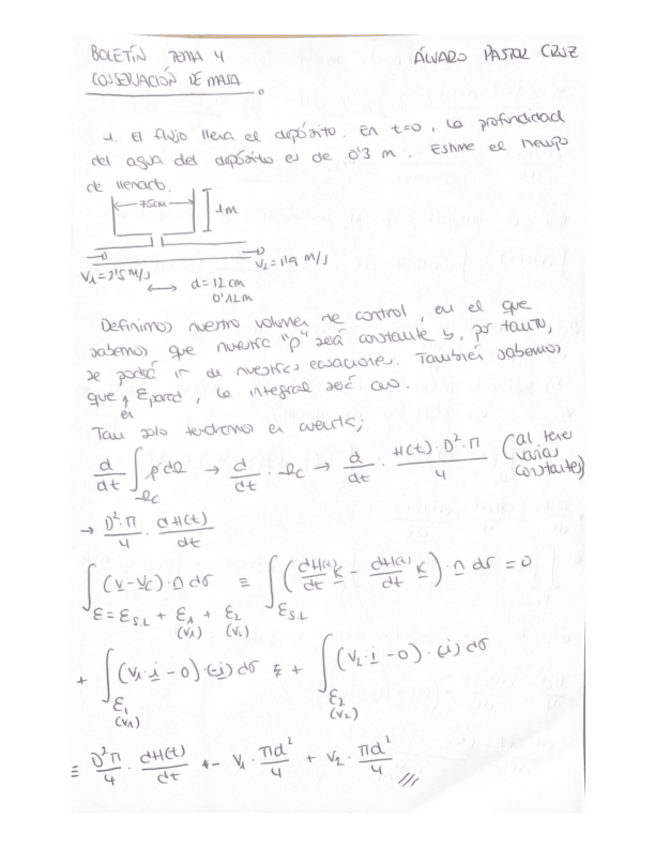 BOLETÍN TEMA 4 ÁLVARO PASTOR CRUZ
CONSERVACIÓN DE MASA.
1. El flujo llena el depósito. En t=0, la profundidad
del agua del depósito es de 0'3 m. Estime el tiempo
de llenado.
75cm 1m
V₁=2'5 m/s V₂=1'9 m/s
d=12cm
0'12m
Definimos nuestro volumen de control, en el que
sabemos que nuestra "ρ" será constante y, por tanto,
se podrá ir de nuestras ecuaciones. También sabemos
que, Σpared, la integral será cero.
en
Tan solo tendremos en cuenta;
d/dt ∫_Ωc ρ dΩ → d/dt · Ωc → d/dt · H(t)·D²·π/4 (al tener varias constantes)
→ D²·π/4 · dH(t)/dt
∫_{Σ=Σ_{S.L}+Σ₁(V₁)+Σ₂(V₂)} (v-v_c)·n dσ ≡ ∫_{Σ_{S.L}} (dH(t)/dt k - dH(t)/dt k)·n dσ = 0
+ ∫_{Σ₁(V₁)} (V₁·i - 0)·(-i) dσ + ∫_{Σ₂(V₂)} (V₂·i - 0)·(i) dσ
≡ D²π/4 · dH(t)/dt - V₁ · πd²/4 + V₂ · πd²/4